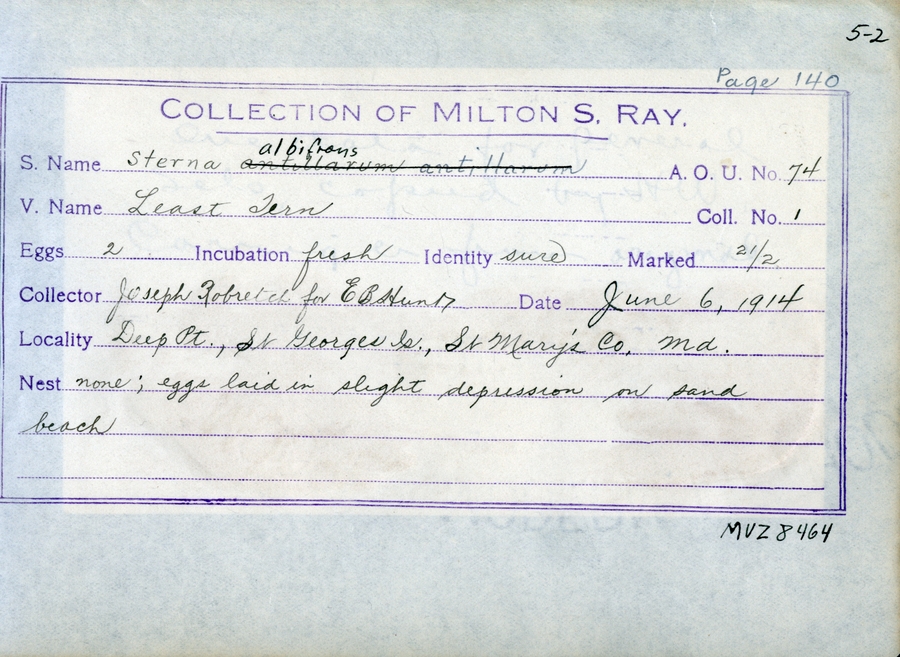 5-2
Page 140
COLLECTION OF MILTON S. RAY.
albifrons
S. Name Sterna antillarum antillarum A. O. U. No. 74
V. Name Least Tern Coll. No. 1
Eggs 2 Incubation fresh Identity sure Marked 21/2
Collector Joseph for E B Hunt Date June 6, 1914
Locality Deep Pt., St Georges Is., St Mary's Co, Md.
Nest none; eggs laid in slight depression on sand
beach
MVZ 8464